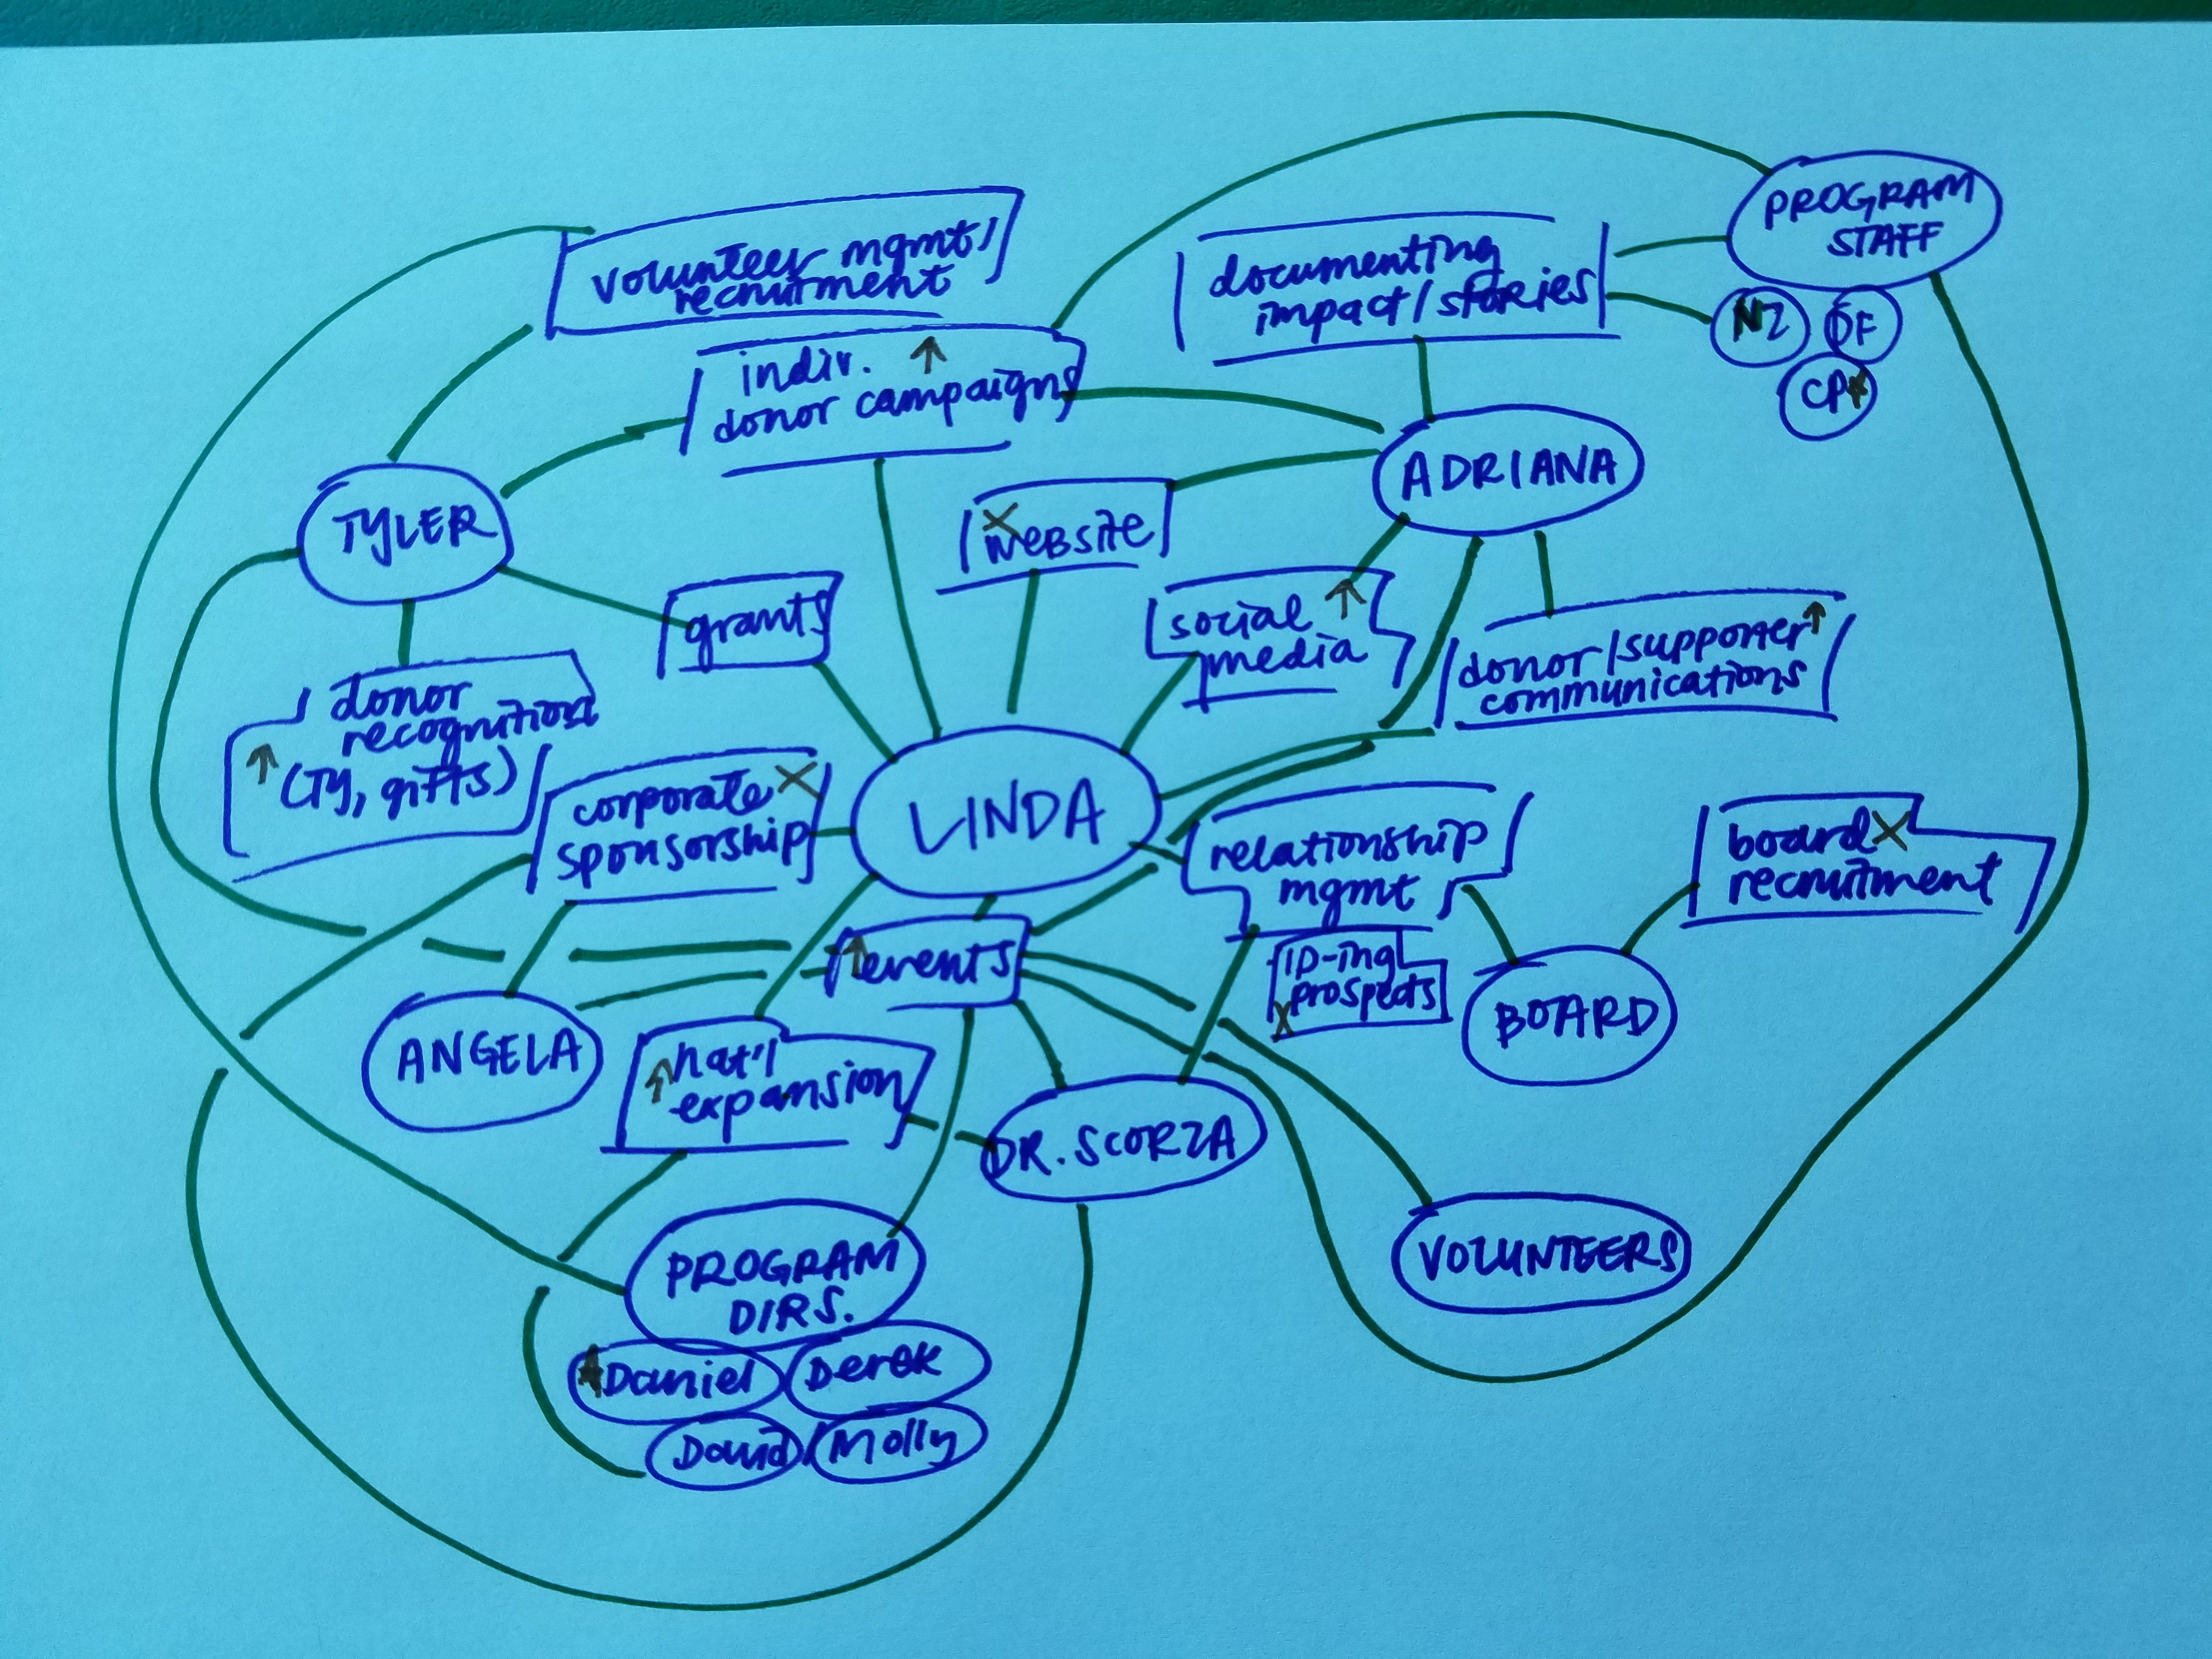 PROGRAM
STAFF
NZ
DF
volunteer mgmt/
recruitment
documenting
impact/stories
indiv. ↑
donor campaigns
TYLER
ADRIANA
X
WEBSITE
grants
social ↑
media
donor/supporter ↑
communications
donor
recognition
↑ (TY, gifts)
corporate X
sponsorship
LINDA
relationship
mgmt
board X
recruitment
↑ events
ID-ing
prospects
X
BOARD
ANGELA
↑ nat'l
expansion
DR. SCORZA
VOLUNTEERS
PROGRAM
DIRS.
Daniel
Derek
David
Molly